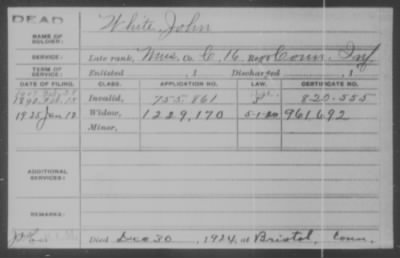 DEAD
NAME OF SOLDIER: White, John
SERVICE: Late rank, Mus, Co. C, 16, Reg't Conn. Inf
TERM OF SERVICE: Enlisted , 1 Discharged , 1
DATE OF FILING. CLASS. APPLICATION NO. LAW. CERTIFICATE NO.
Invalid, 755.861 820-555
1925 Jan 12 Widow, 1229,170 5-1-20 961692
Minor,
ADDITIONAL SERVICES:
REMARKS:
Died Dec 30, 1924, at Bristol, Conn.